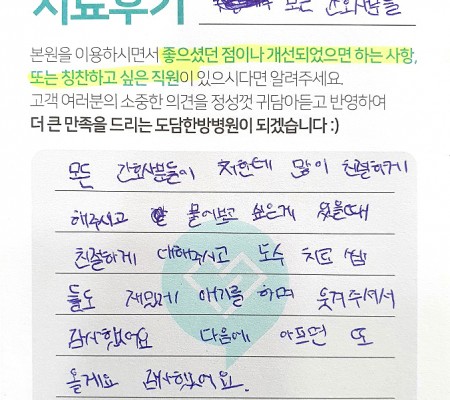 치료후기 모든 간호사분들
본원을 이용하시면서 좋으셨던 점이나 개선되었으면 하는 사항,
또는 칭찬하고 싶은 직원이 있으시다면 알려주세요.
고객 여러분의 소중한 의견을 정성껏 귀담아듣고 반영하여
더 큰 만족을 드리는 도담한방병원이 되겠습니다 :)
모든 간호사분들이 저한테 많이 친절하게
해주시고 물어보고 싶은게 있을때
친절하게 대해주시고 도수 치료 쌤
들도 재밌게 얘기를 하며 웃겨주셔서
감사했어요 다음에 아프면 또
올게요 감사했어요.